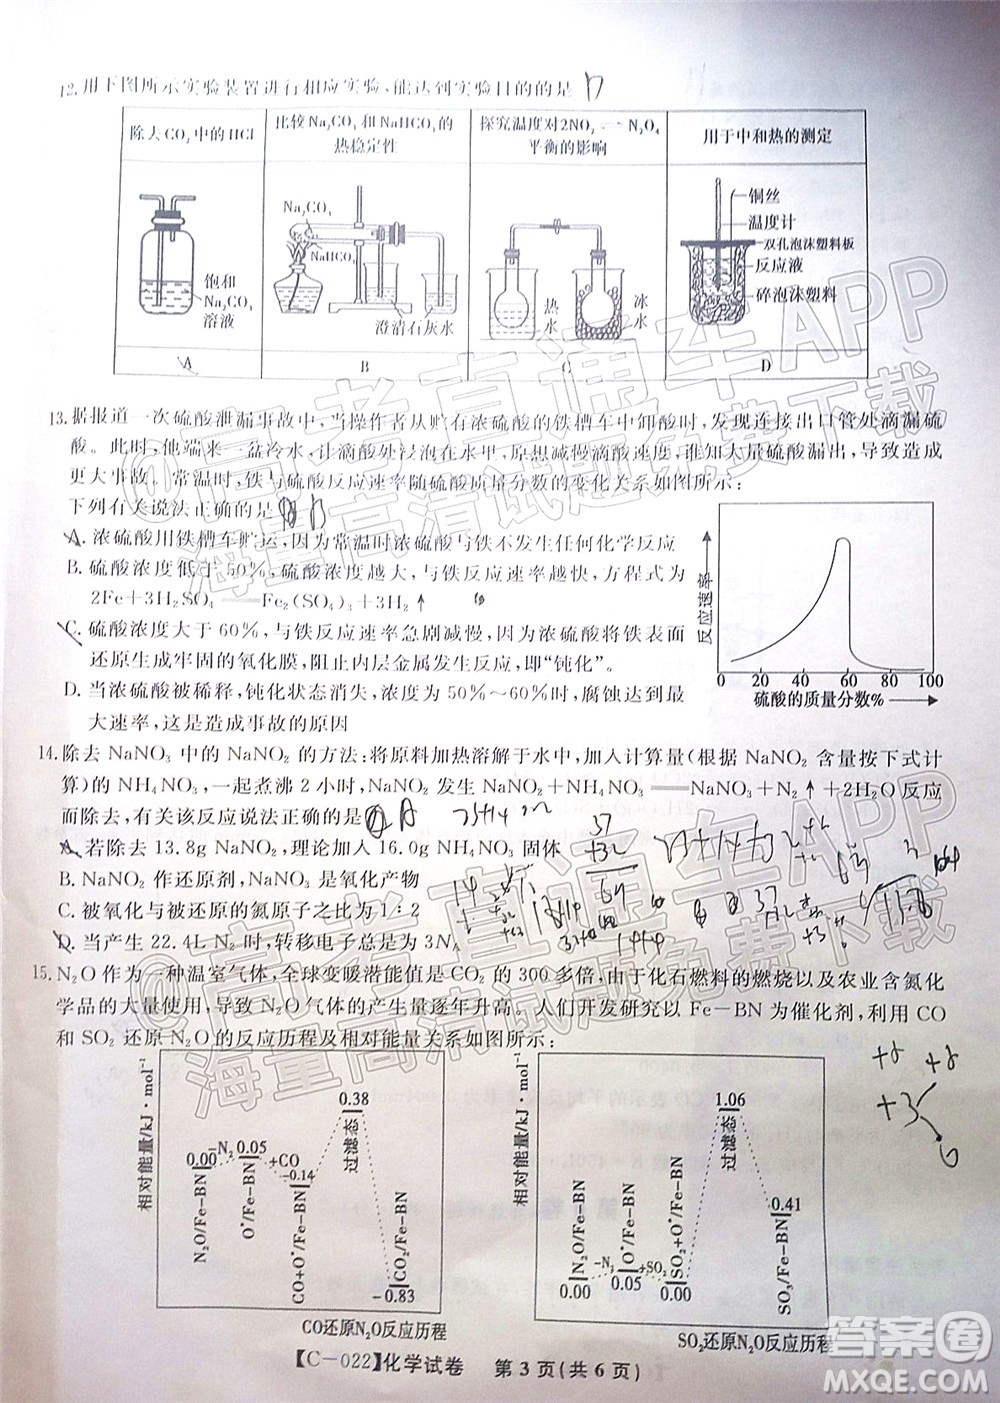 12.用下图所示实验装置进行相应实验,能达到实验目的的是 D
除去CO₂中的HCl
比较Na₂CO₃和NaHCO₃的热稳定性
探究温度对2NO₂ N₂O₄平衡的影响
用于中和热的测定
饱和Na₂CO₃溶液
Na₂CO₃
NaHCO₃
澄清石灰水
热水
冰水
铜丝
温度计
双孔泡沫塑料板
反应液
碎泡沫塑料
A B C D
13.据报道一次硫酸泄漏事故中,当操作者从贮有浓硫酸的铁槽车中卸酸时,发现连接出口管处滴漏硫
酸。此时,他端来一盆冷水,让滴酸处浸在水中,原想减慢滴酸速度,谁知大量硫酸漏出,导致发生
更大事故。常温时,铁与硫酸反应速率随硫酸质量分数的变化关系如图所示:
下列有关说法正确的是
A.浓硫酸用铁槽车贮运,因为常温时浓硫酸与铁不发生任何化学反应
B.硫酸浓度低于50%,硫酸浓度越大,与铁反应速率越快,方程式为
2Fe+3H₂SO₄ Fe₂(SO₄)₃+3H₂↑
C.硫酸浓度大于60%,与铁反应速率急剧减慢,因浓硫酸将铁表面
还原生成牢固的氧化膜,阻止里层金属发生反应,即“钝化”。
D.当浓硫酸被稀释,钝化状态消失,浓度为50%~60%时,腐蚀达到最
大速率,这是造成事故的原因
反应速率
0 20 40 60 80 100
硫酸的质量分数%
14.除去NaNO₃中的NaNO₂的方法:将原料加热溶解于水中,加入计算量(根据NaNO₂含量按下式计
算)的NH₄NO₃,一起煮沸2小时,NaNO₂发生NaNO₂+NH₄NO₃ NaNO₃+N₂↑+2H₂O反应
而除去,有关该反应说法正确的是 A
A.若除去13.8g NaNO₂,理论加入16.0g NH₄NO₃固体
B.NaNO₂作还原剂,NaNO₃是氧化产物
C.被氧化与被还原的氮原子之比为1:2
D.当产生22.4L N₂时,转移电子总是为3Nᴀ
15.N₂O作为一种温室气体,全球变暖潜能值是CO₂的300多倍,由于化石燃料的燃烧以及农业含氮化
学品的大量使用,导致N₂O气体的产生量逐年升高。人们开发研究以Fe-BN为催化剂,利用CO
和SO₂还原N₂O的反应历程及相对能量关系如图所示:
相对能量/kJ·mol⁻¹
0.00
N₂O/Fe-BN
-N₂
0.05
O*/Fe-BN
+CO
-0.14
CO+O*/Fe-BN
0.38
过滤态
CO₂/Fe-BN
-0.83
CO还原N₂O反应历程
相对能量/kJ·mol⁻¹
N₂O/Fe-BN
0.00
-N₃
O*/Fe-BN
0.05
+SO₂
SO₂+O*/Fe-BN
0.00
1.06
过滤态
0.41
SO₃/Fe-BN
SO₂还原N₂O反应历程
【C-022】化学试卷 第3页(共6页)
@高考直通车APP
海量高清试题免费下载
高考直通车APP
海量高清试题免费下载
答案圈
MXQE.COM